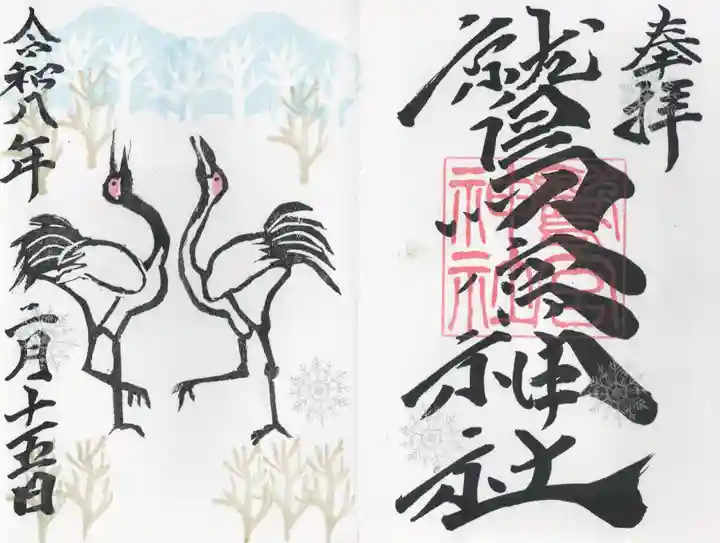 奉拝
鷲宮神社
鷲宮
神社
令和八年
二月十五日